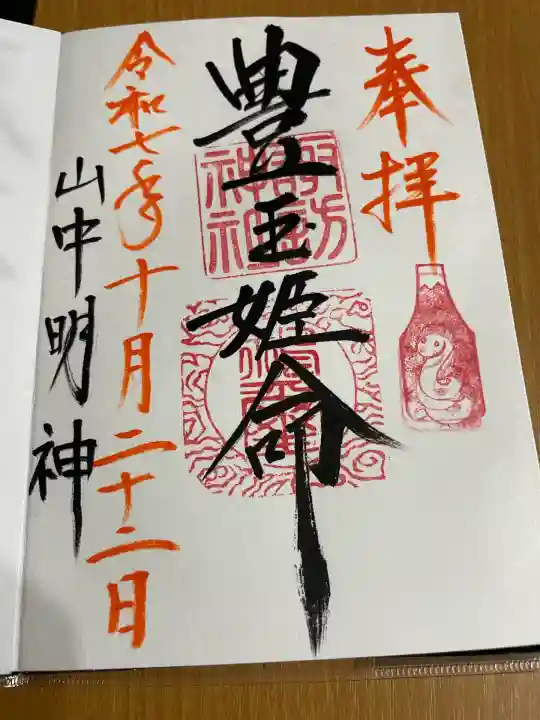 奉拝
豊玉姫命
諏訪神社
令和七年十月二十二日
山中明神